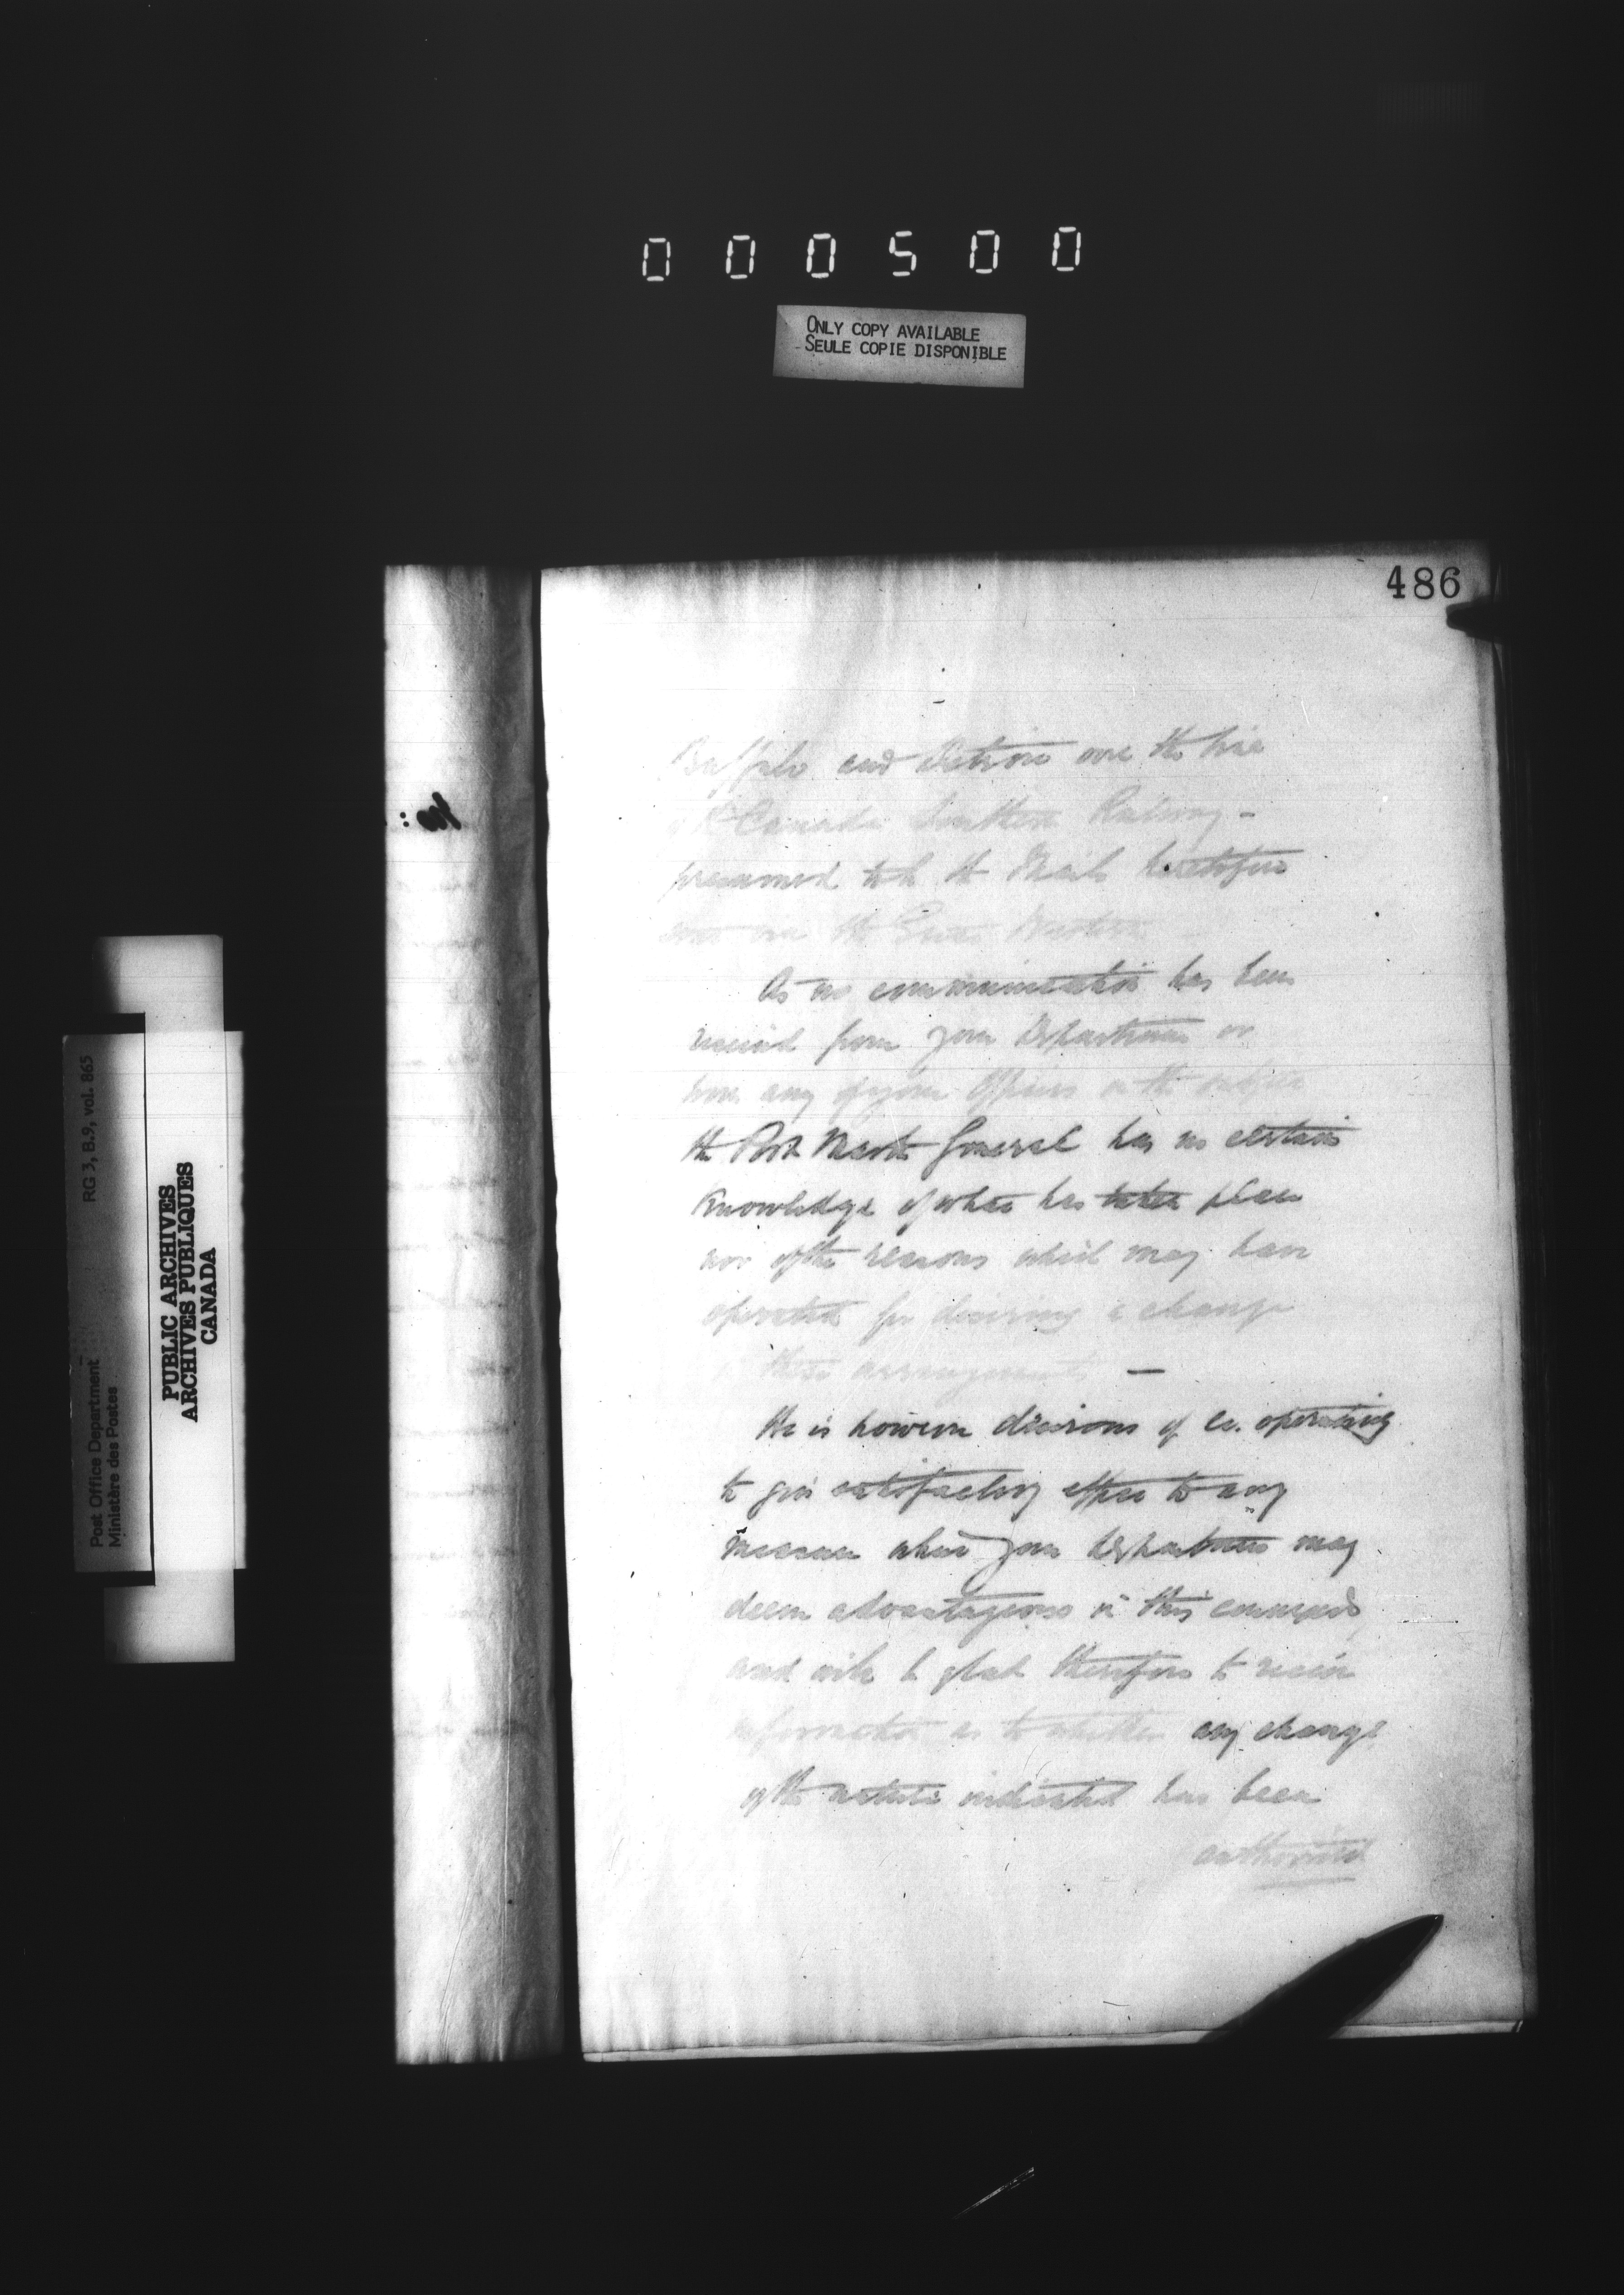 000500
ONLY COPY AVAILABLE
SEULE COPIE DISPONIBLE
486
Buffalo and Detroit over the line
of the Canada Southern Railway -
presumed to be the Mails heretofore
sent via the Great Western
As no communication has been
received from your Department or
from any of your Officers on the subject
the Post Master General has no certain
knowledge of what has taken place
nor of the reasons which may have
operated for desiring a change
these arrangements —
He is however desirous of co. operating
to give satisfactory effect to any
measure which your Department may
deem advantageous in this connexion,
and will be glad therefore to receive
information as to whether any change
of the nature indicated has been
authorized
RG 3, B.9, vol. 865
Post Office Department
Ministère des Postes
PUBLIC ARCHIVES
ARCHIVES PUBLIQUES
CANADA